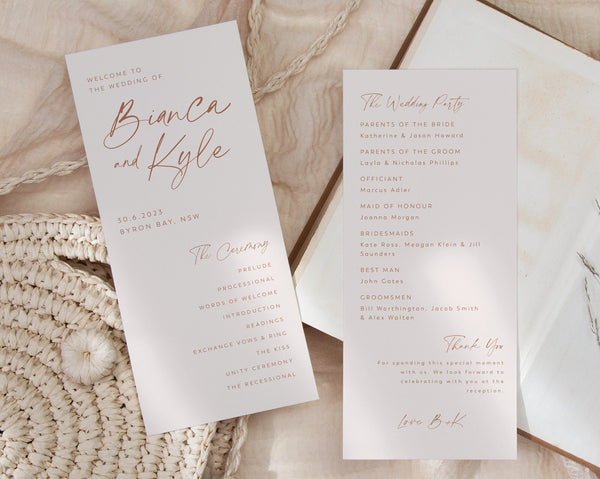 WELCOME TO
THE WEDDING OF
Bianca
and Kyle
30.6.2023
BYRON BAY, NSW
The Ceremony
PRELUDE
PROCESSIONAL
WORDS OF WELCOME
INTRODUCTION
READINGS
EXCHANGE VOWS & RING
THE KISS
UNITY CEREMONY
THE RECESSIONAL
The Wedding Party
PARENTS OF THE BRIDE
Katherine & Jason Howard
PARENTS OF THE GROOM
Layla & Nicholas Phillips
OFFICIANT
Marcus Adler
MAID OF HONOUR
Joanna Morgan
BRIDESMAIDS
Kate Ross, Meagan Klein & Jill
Saunders
BEST MAN
John Gates
GROOMSMEN
Bill Worthington, Jacob Smith
& Alex Walten
Thank You
For spending this special moment
with us. We look forward to
celebrating with you at the
reception.
Love B+K